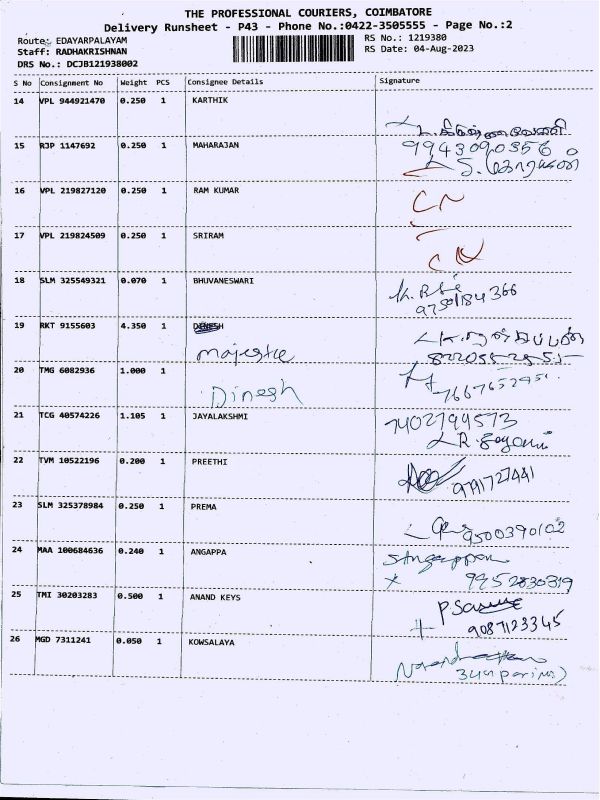 THE PROFESSIONAL COURIERS, COIMBATORE
Delivery Runsheet - P43 - Phone No.:0422-3505555 - Page No.:2
Route: EDAYARPALAYAM
RS No.: 1219380
Staff: RADHAKRISHNAN
RS Date: 04-Aug-2023
DRS No.: DCJB121938002
S No Consignment No Weight PCS Consignee Details Signature
14 VPL 944921470 0.250 1 KARTHIK
15 RJP 1147692 0.250 1 MAHARAJAN
16 VPL 219827120 0.250 1 RAM KUMAR CN
17 VPL 219824509 0.250 1 SRIRAM CN
18 SLM 325549321 0.070 1 BHUVANESWARI
19 RKT 9155603 4.350 1 DINESH
majestic
20 TMG 6082936 1.000 1
Dinesh
21 TCG 40574226 1.105 1 JAYALAKSHMI 7402799573
22 TVM 10522196 0.200 1 PREETHI
9791727441
23 SLM 325378984 0.250 1 PREMA
9500390102
24 MAA 100684636 0.240 1 ANGAPPA
9952830319
25 TMI 30203283 0.500 1 ANAND KEYS
9087123345
26 MGD 7311241 0.050 1 KOWSALAYA